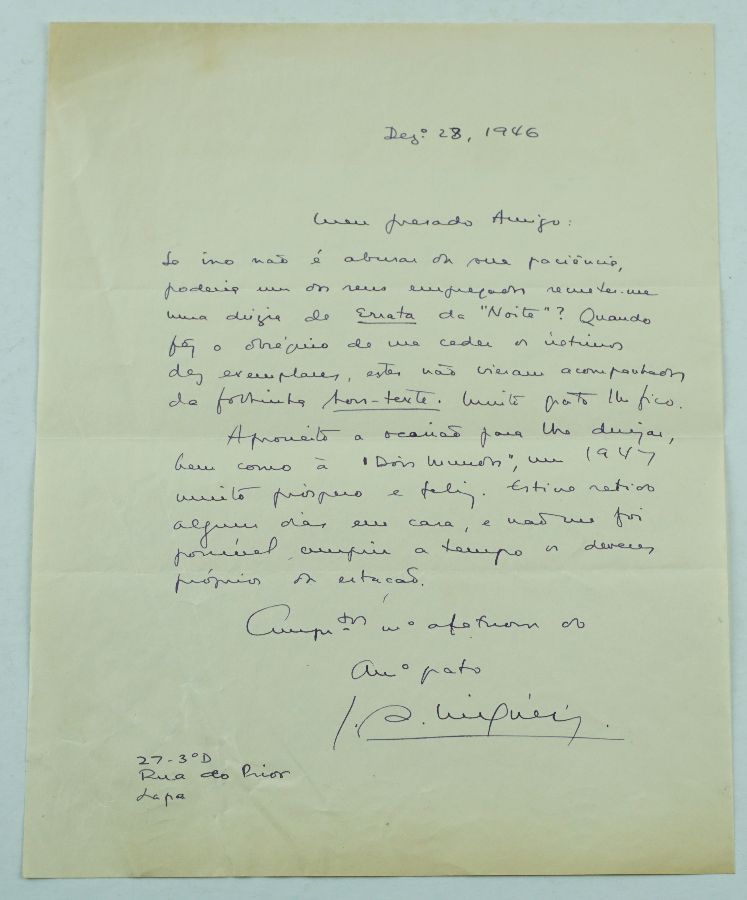 Dezº 28, 1946
Meu presado Amigo:
Se isso não é abusar da sua paciência,
poderia um dos seus empregados remeter-me
uma dúzia de Errata da "Noite"? Quando
fêz o obséquio de me ceder os últimos
dez exemplares, estes não vieram acompanhados
da folhinha hors-texte. Muito grato lhe fico.
Aproveito a ocasião para lhe desejar,
bem como à "Dois Mundos", um 1947
muito próspero e feliz. Estive retido
alguns dias em casa, e não me foi
possível cumprir a tempo os deveres
próprios da estação.
Cumprtos mº afetuosos do
Amº grato
J. R. Miguéis.
27-3ºD
Rua do Prior
Lapa